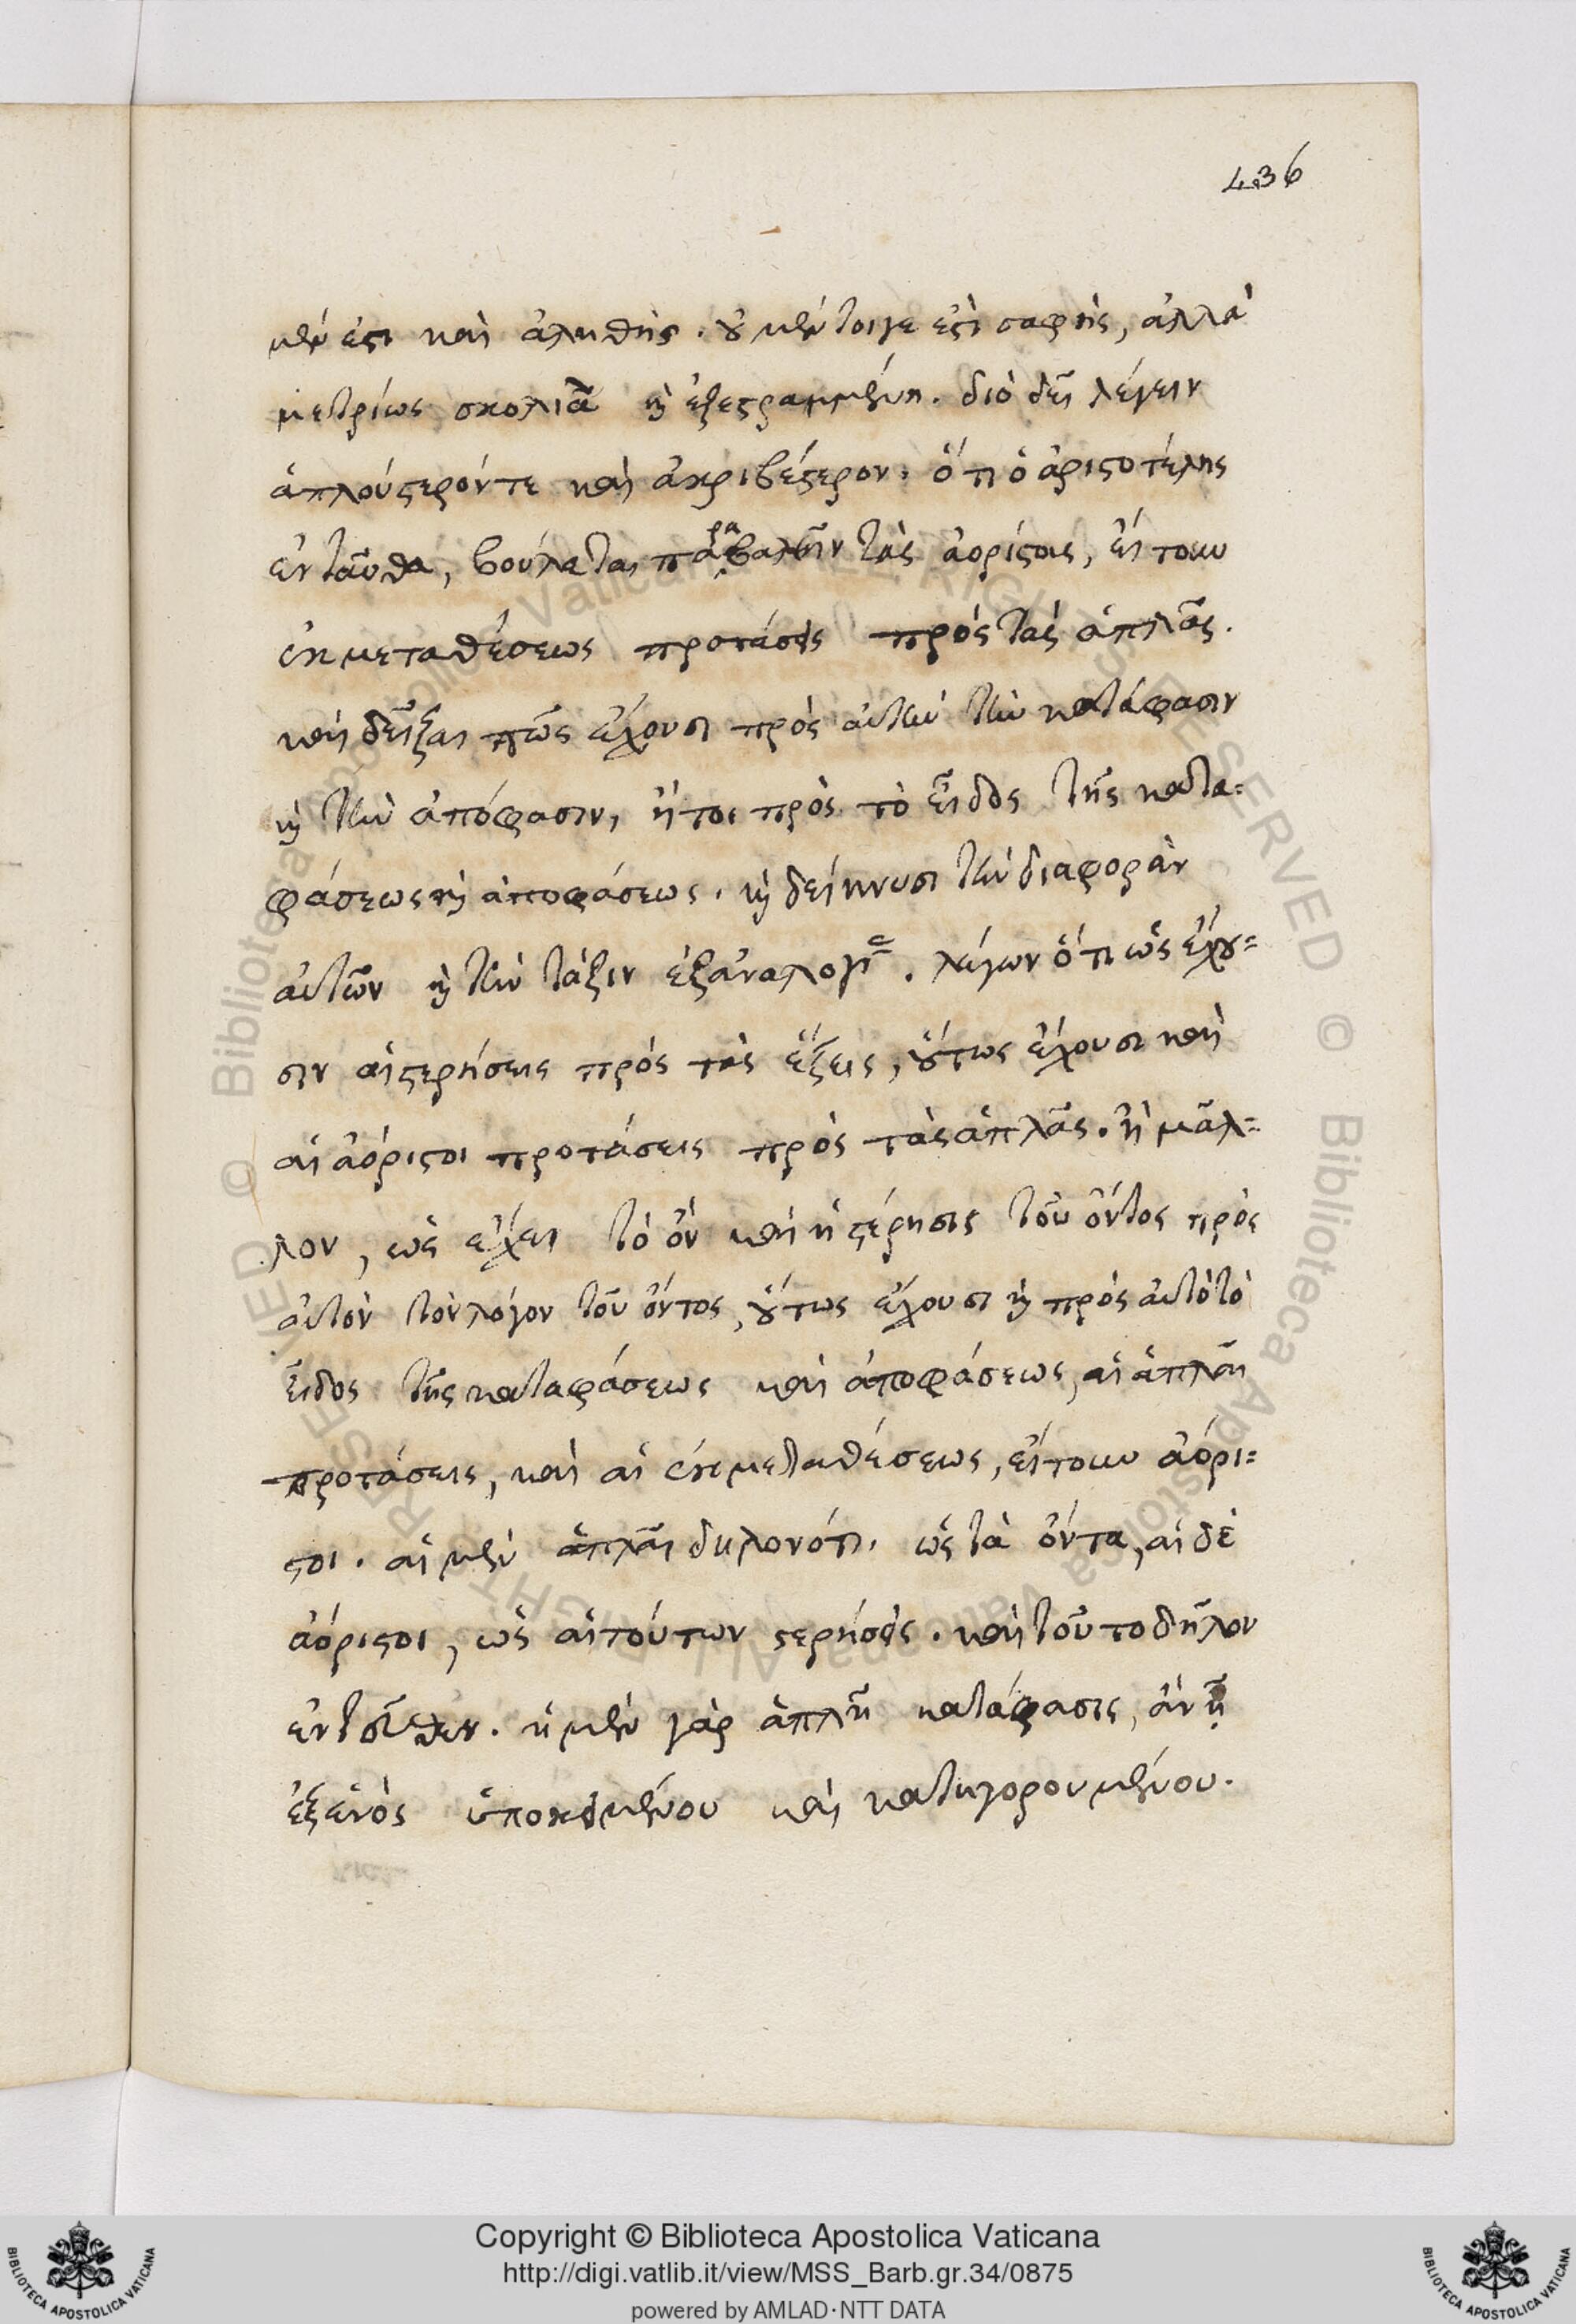 436
μέν ἐστι καὶ ἀληθὴς. οὐ μέντοιγε ἐστὶ σαφὴς, ἀλλὰ
μετρίως σκολιᾶ καὶ ἐξεστραμμένη. διὸ δεῖ λέγειν
ἁπλούστερόντε καὶ ἀκριβέστερον. ὅτι ὁ ἀριστοτέλης
ἐνταῦθα, βούλεται παραβαλεῖν τὰς ἀορίστους, εἴτουν
ἐκ μεταθέσεως προτάσεις πρὸς τὰς ἁπλᾶς.
καὶ δεῖξαι πῶς ἔχουσι πρὸς αὐτὴν τὴν κατάφασιν
καὶ τὴν ἀπόφασιν, ἤτοι πρὸς τὸ εἶδος τῆς κατα=
φάσεως καὶ ἀποφάσεως. καὶ δείκνυσι τὴν διαφορὰν
αὐτῶν καὶ τὴν τάξιν ἐξ ἀναλογίας. λέγων ὅτι ὡς ἔχου=
σιν αἱ στερήσεις πρὸς τὰς ἕξεις, οὕτως ἔχουσι καὶ
αἱ ἀόριστοι προτάσεις πρὸς τὰς ἁπλᾶς. ἢ μᾶλ=
λον, ὡς ἔχει τὸ ὂν καὶ ἡ στέρησις τοῦ ὄντος πρὸς
αὐτὸν τὸν λόγον τοῦ ὄντος, οὕτως ἔχουσι καὶ πρὸς αὐτὸ τὸ
εἶδος τῆς καταφάσεως καὶ ἀποφάσεως, αἱ ἁπλαῖ
προτάσεις, καὶ αἱ ἐκ μεταθέσεως, εἴτουν ἀόρι=
στοι. αἱ μὲν ἁπλαῖ δηλονότι. ὡς τὰ ὄντα, αἱ δὲ
ἀόριστοι, ὡς αἱ τούτων στερήσεις. καὶ τοῦτο δῆλον
ἐντεῦθεν. ἡ μὲν γὰρ ἁπλῆ κατάφασις, ἂν ᾖ
ἐξ ἑνὸς ὑποκειμένου καὶ κατηγορουμένου.
Copyright © Biblioteca Apostolica Vaticana
http://digi.vatlib.it/view/MSS_Barb.gr.34/0875
powered by AMLAD·NTT DATA